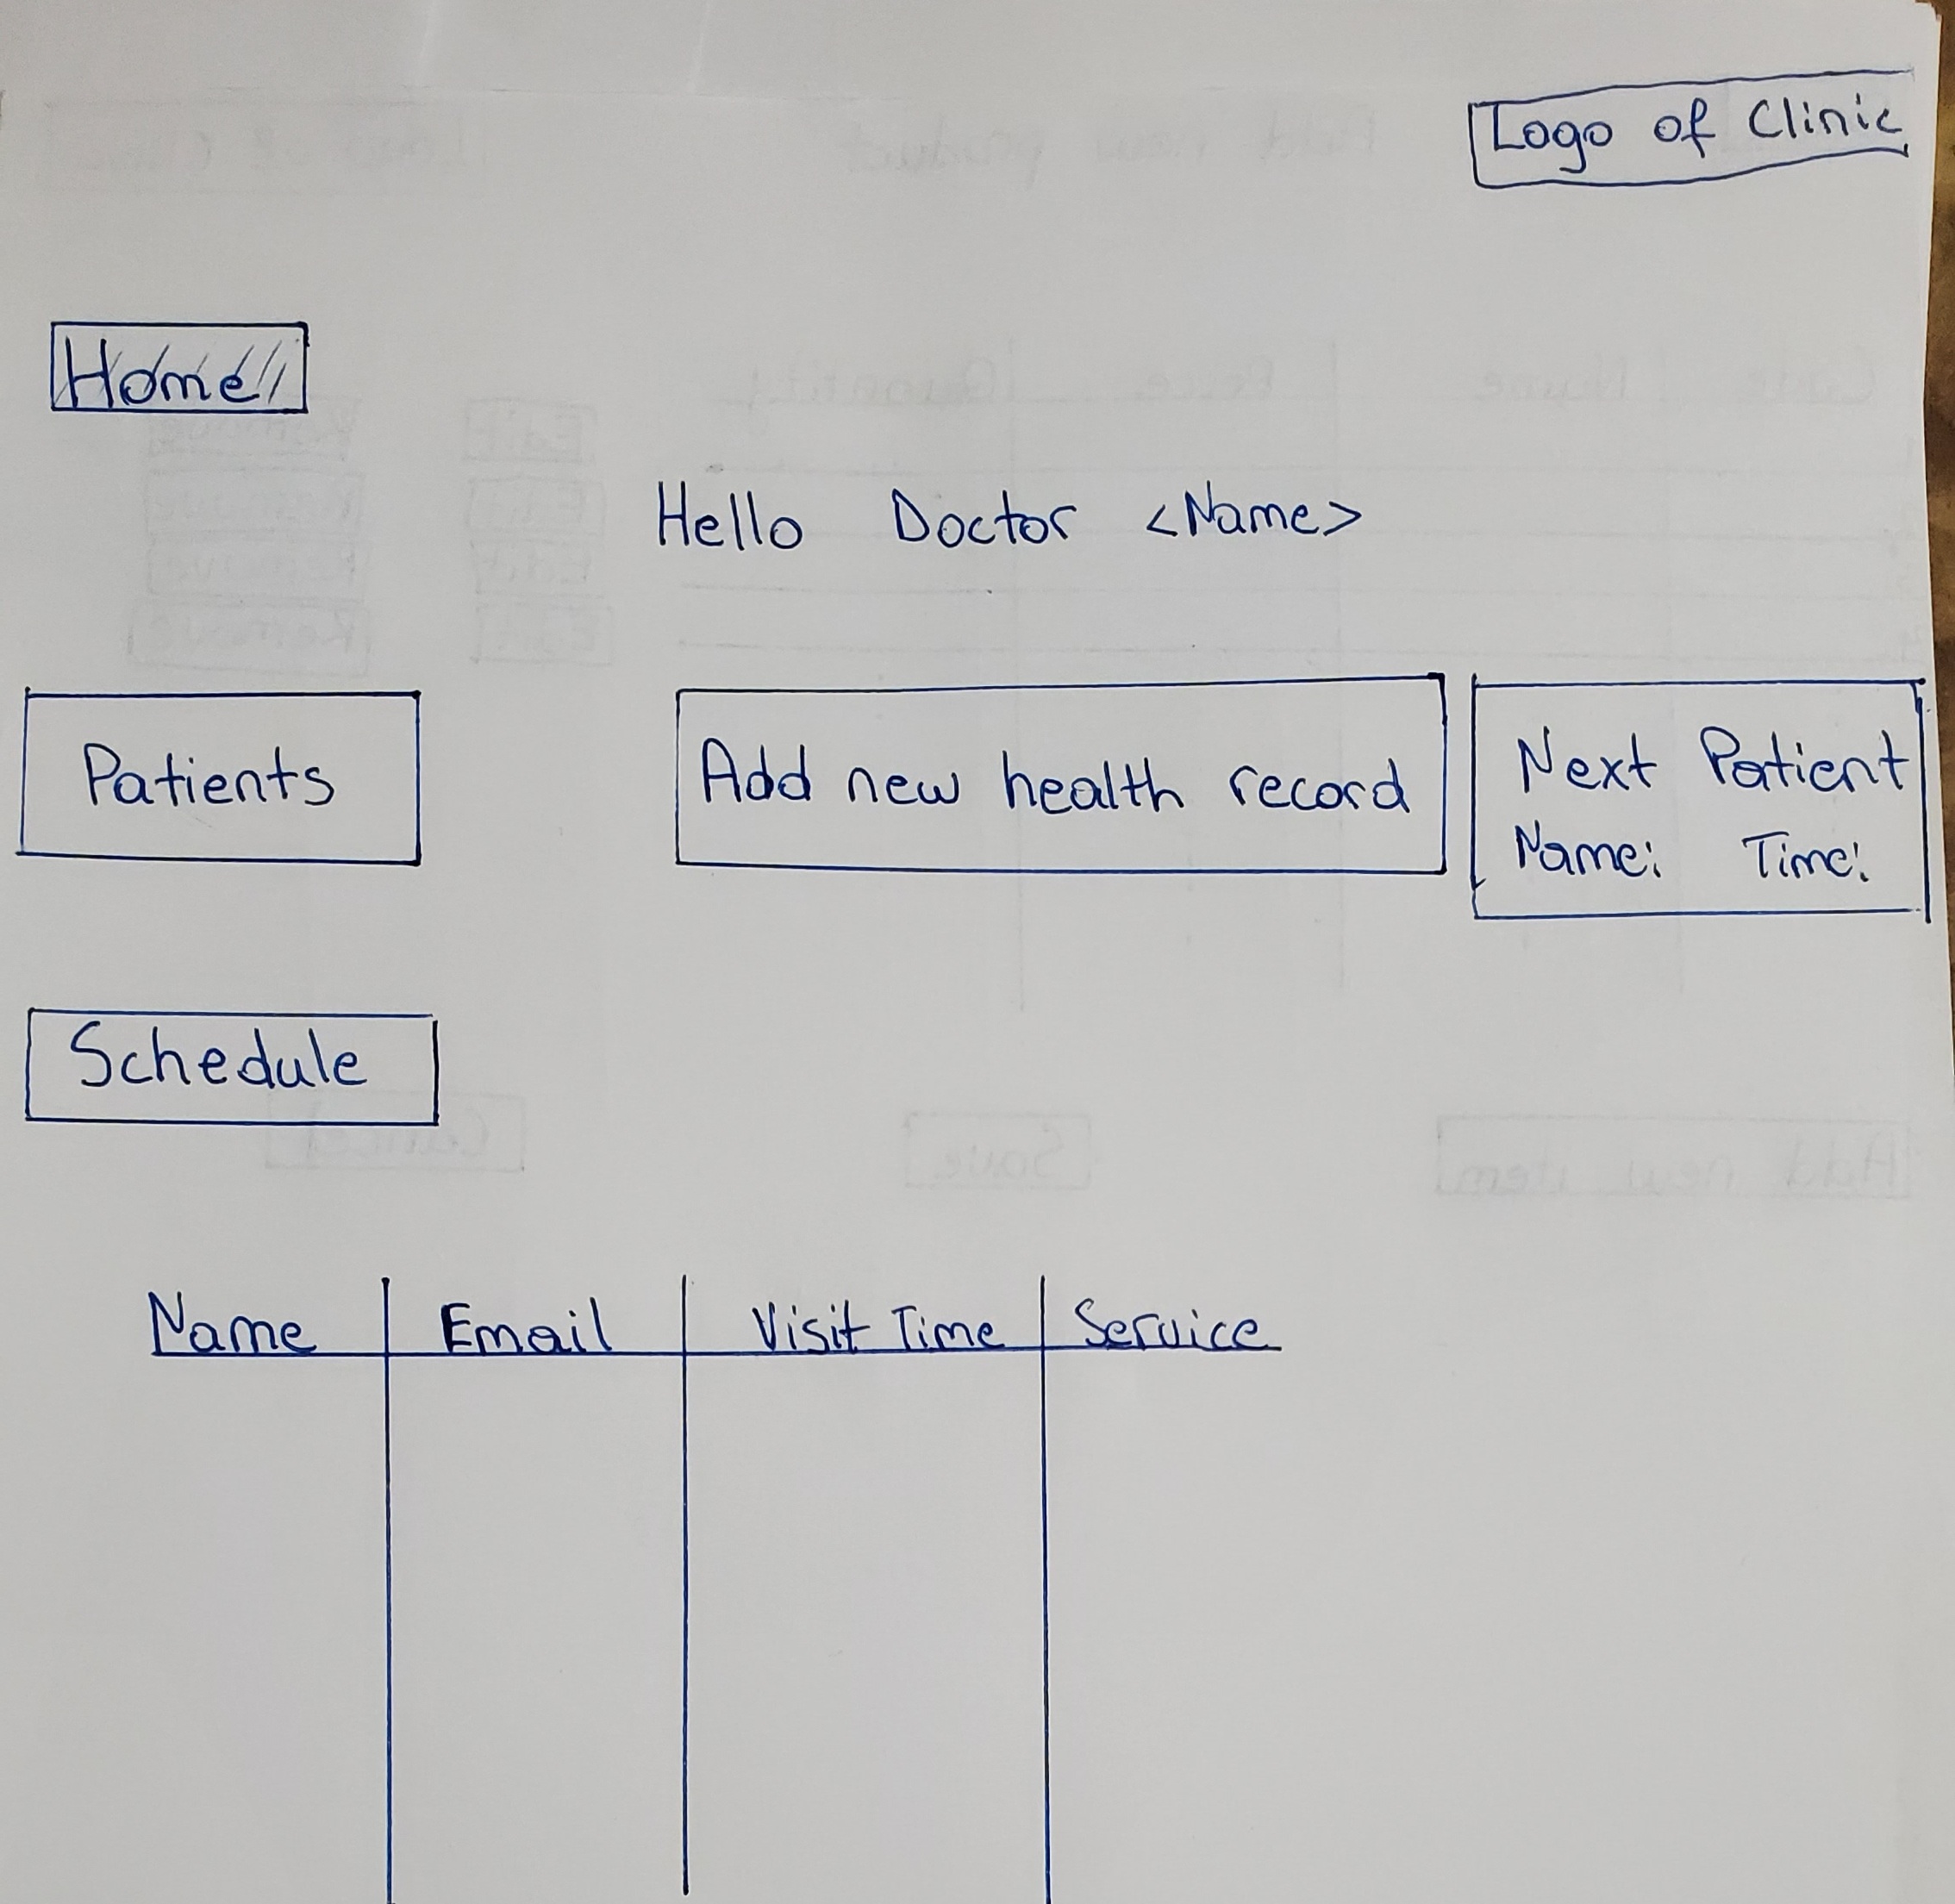 Logo of Clinic
Home
Hello Doctor <Name>
Patients
Add new health record
Next Patient
Name: Time:
Schedule
Name Email Visit Time Service